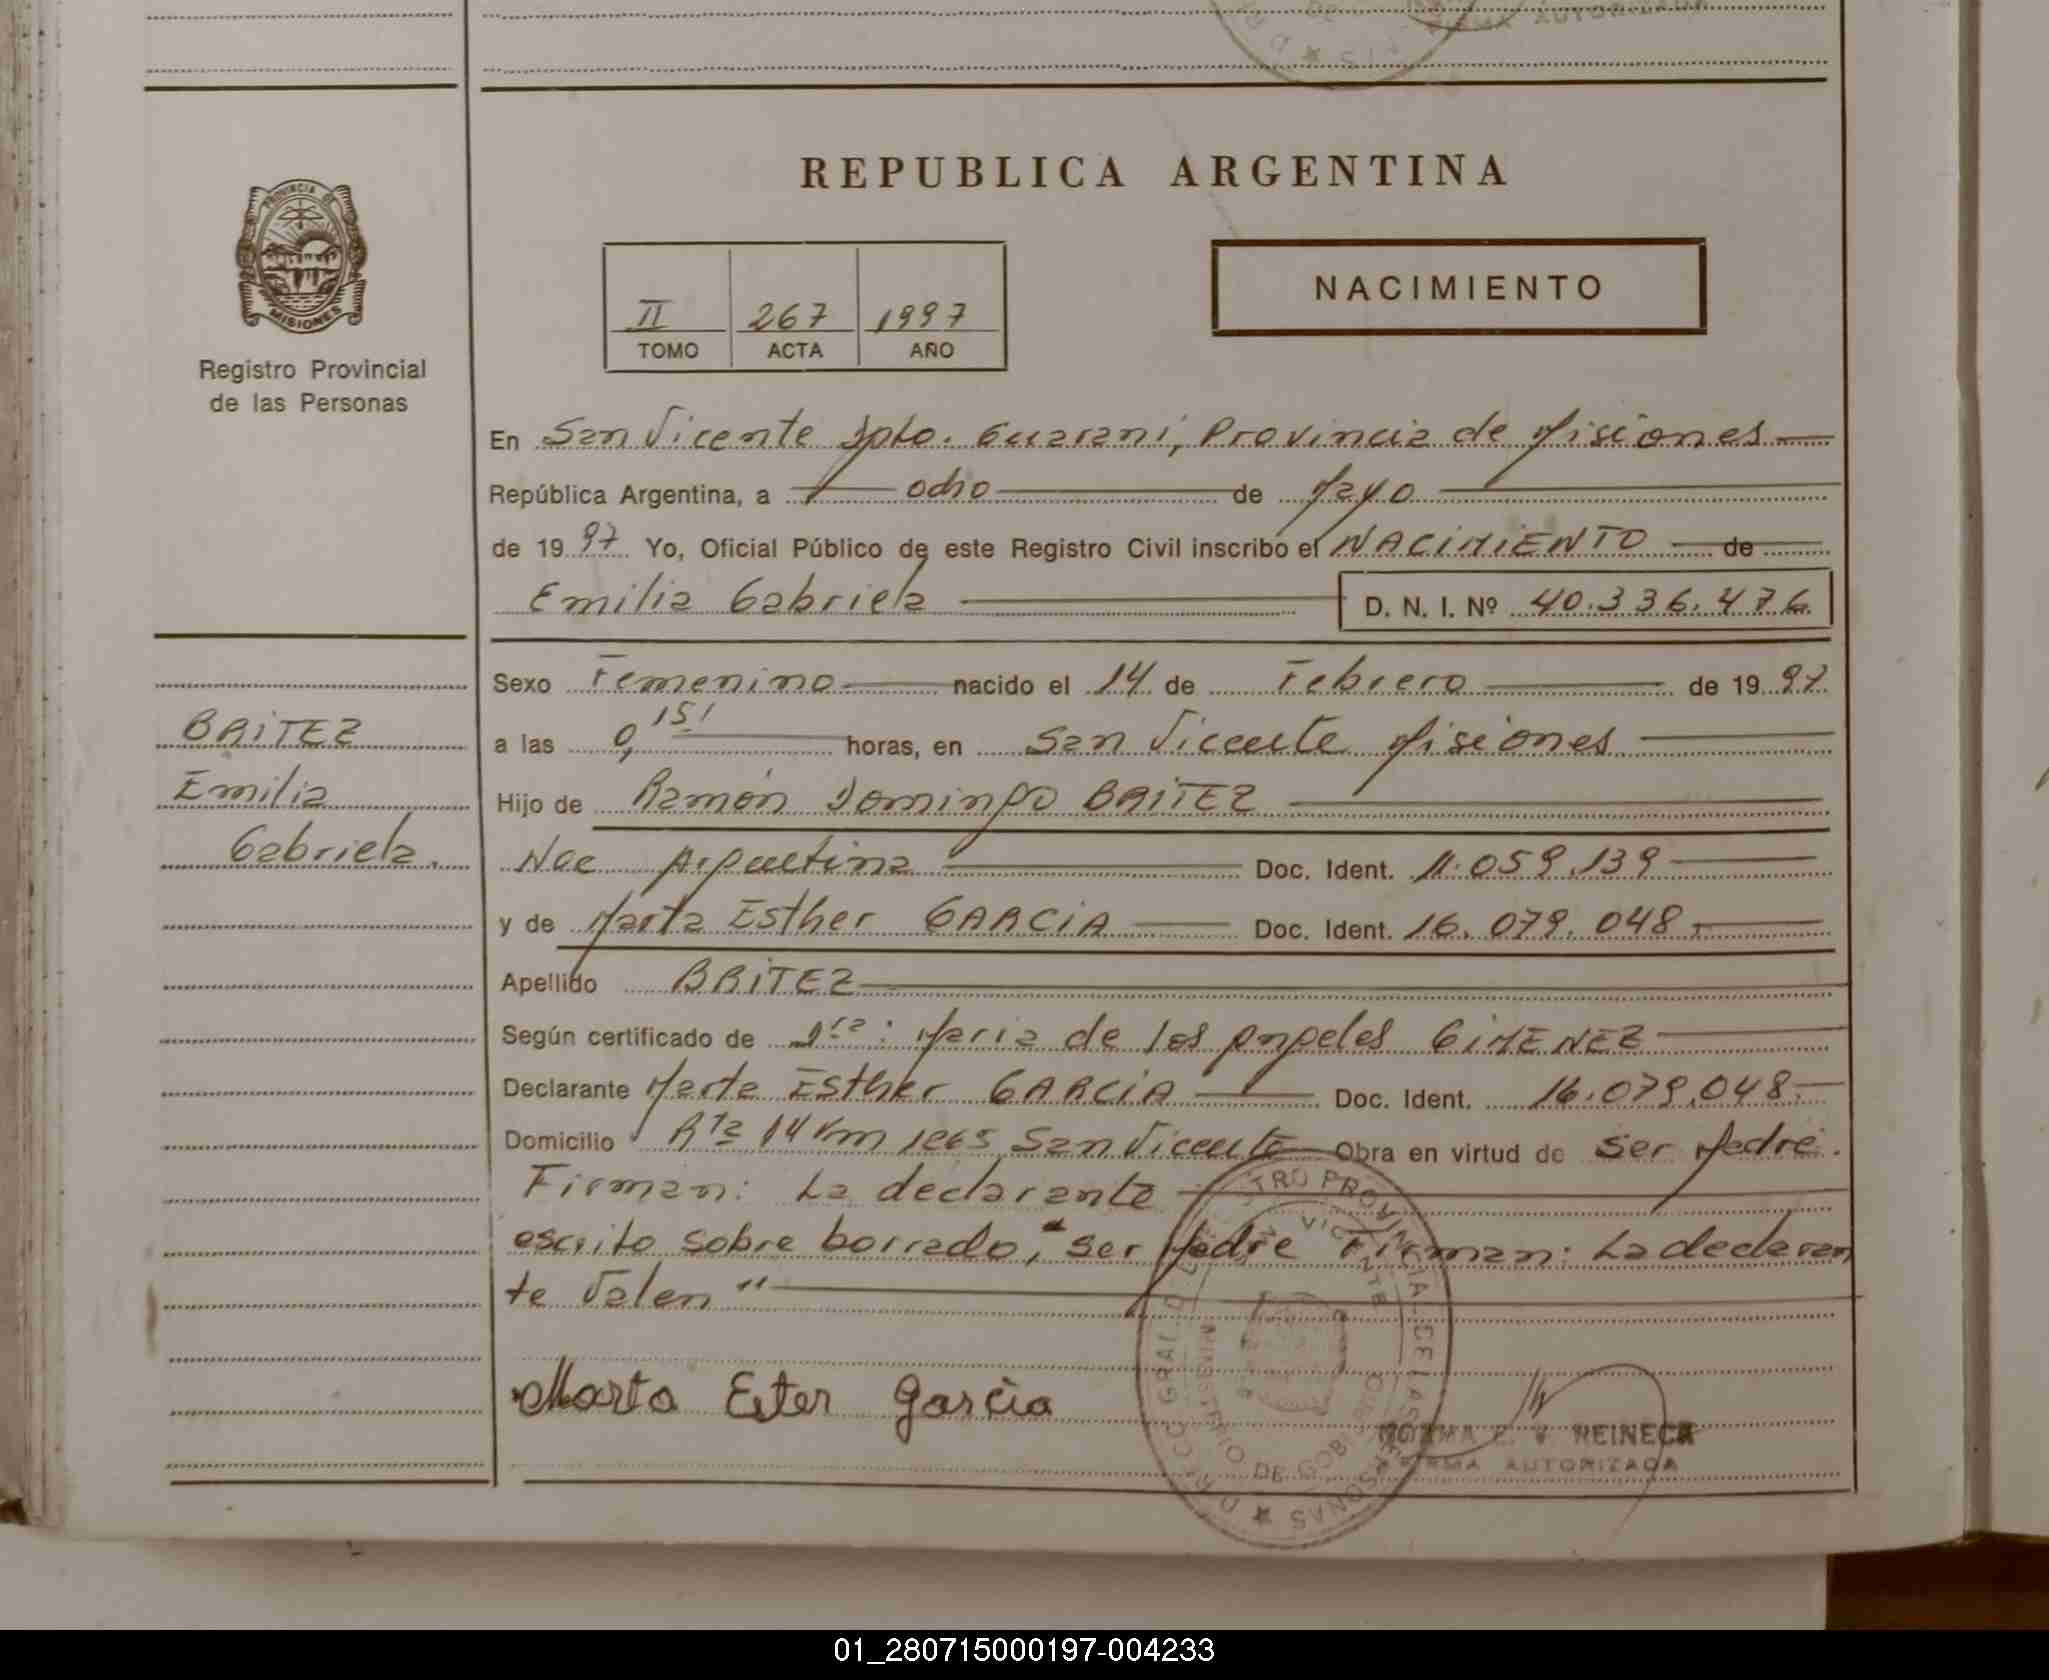 FIRMA AUTORIZADA
REPUBLICA ARGENTINA
PROVINCIA DE
MISIONES
Registro Provincial
de las Personas
II 267 1997
TOMO ACTA AÑO
NACIMIENTO
En San Vicente Dpto. Guarani, Provincia de Misiones
República Argentina, a ocho de Mayo
de 1997 Yo, Oficial Público de este Registro Civil inscribo el NACIMIENTO de
Emilia Gabriela D. N. I. Nº 40.336.476
Sexo Femenino nacido el 14 de Febrero de 1997
a las 0,15' horas, en San Vicente Misiones
Hijo de Ramón Domingo BRITEZ
Nac Argentina Doc. Ident. 11.059.139
y de Marta Esther GARCIA Doc. Ident. 16.079.048
Apellido BRITEZ
Según certificado de Dra: Maria de los Angeles GIMENEZ
Declarante Marta Esther GARCIA Doc. Ident. 16.079.048
Domicilio Rta 14 Km 1265 San Vicente Obra en virtud de ser Madre.
Firman: La declarante
escrito sobre borrado, "ser Madre Firman: La declaran
te Valen"
BRITEZ
Emilia
Gabriela.
Marta Ester Garcia
NORMA E. V. REINECK
FIRMA AUTORIZADA
01_280715000197-004233